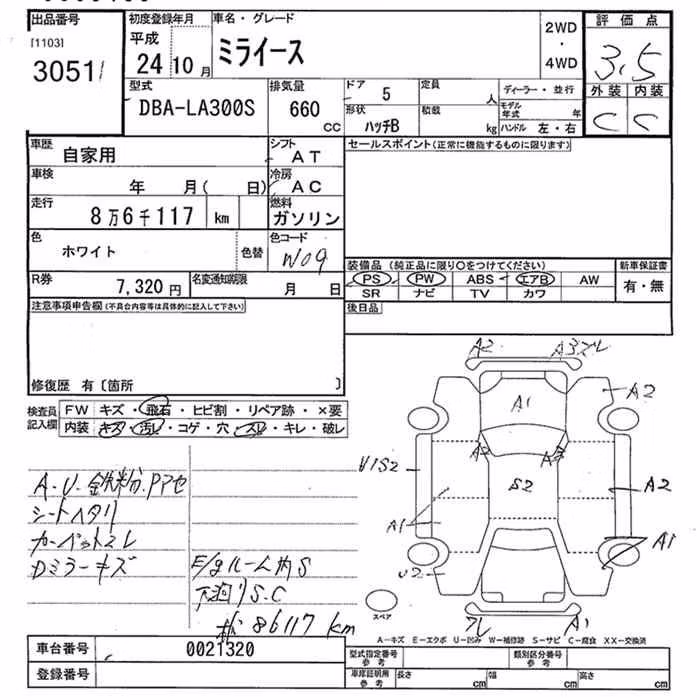 出品番号 初度登録年月 車名・グレード 2WD・4WD 評価点
[1103] 平成 ミライース 3.5
3051 24 10月
型式 排気量 ドア 5 定員 人 ディーラー・並行 外装 内装
DBA-LA300S 660 cc 形状 ハッチB 積載 kg モデル年式 年 C C
ハンドル 左・右
車歴 自家用 シフト AT セールスポイント(正常に機能するものに限ります)
車検 年 月( 日) 冷房 AC
走行 8万6千117 km 燃料 ガソリン
色 ホワイト 色替 色コード W09
装備品 (純正品に限り○をつけてください) 新車保証書
PS PW ABS エアB AW 有・無
R券 7,320円 名変通知期限 月 日 SR ナビ TV カワ
注意事項申告欄(不具合内容等は具体的に記入して下さい) 後日品
修復歴 有〔箇所 〕
検査員記入欄 FW キズ・飛石・ヒビ割・リペア跡・×要
内装 キズ・汚レ・コゲ・穴・スレ・キレ・破レ
A2 A3ズレ
A1 A2
A2 A3
U1S2 S2 A2
A1 A1
U2
スレ A1
A.U.鉄粉.Pアセ
シートヘタリ
カーペットスレ
Dミラーキズ E/gルーム内S
下廻りS.C
86117km
スペア
A-キズ E-エクボ U-凹み W-補修跡 S-サビ C-腐食 XX-交換済
車台番号 0021320 型式指定番号 参考 類別区分番号 参考
登録番号 車庫証明用 参考 長さ cm 幅 cm 高さ cm